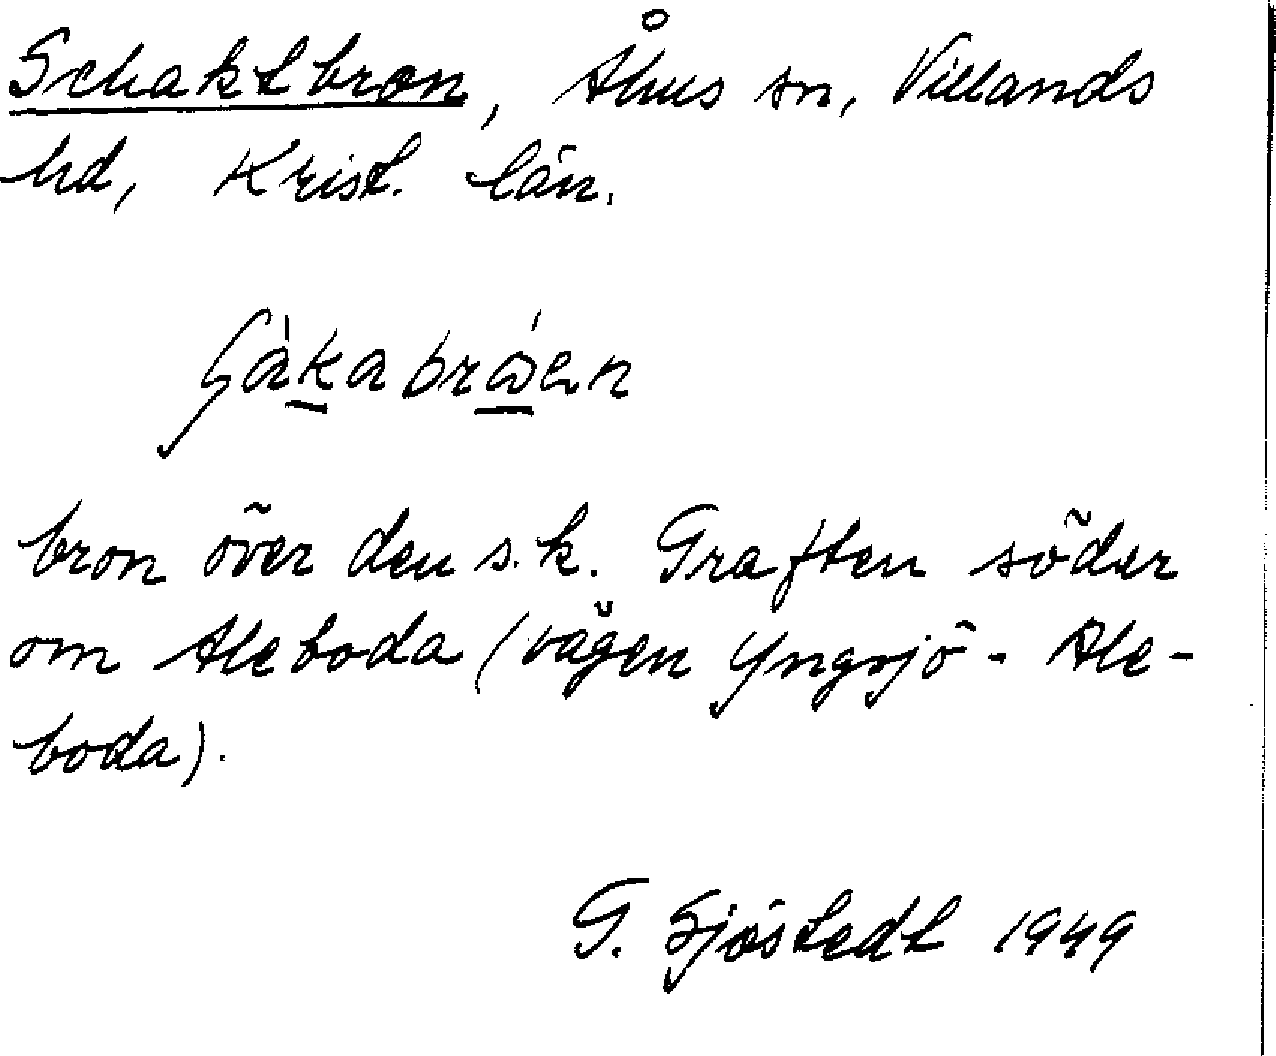 Schaktbron, Åhus sn, Villands
hd, Krist. län.
bron över den s.k. Graften söder
om Aleboda (vägen Yngsjö - Ale-
boda).
G. Sjöstedt 1949